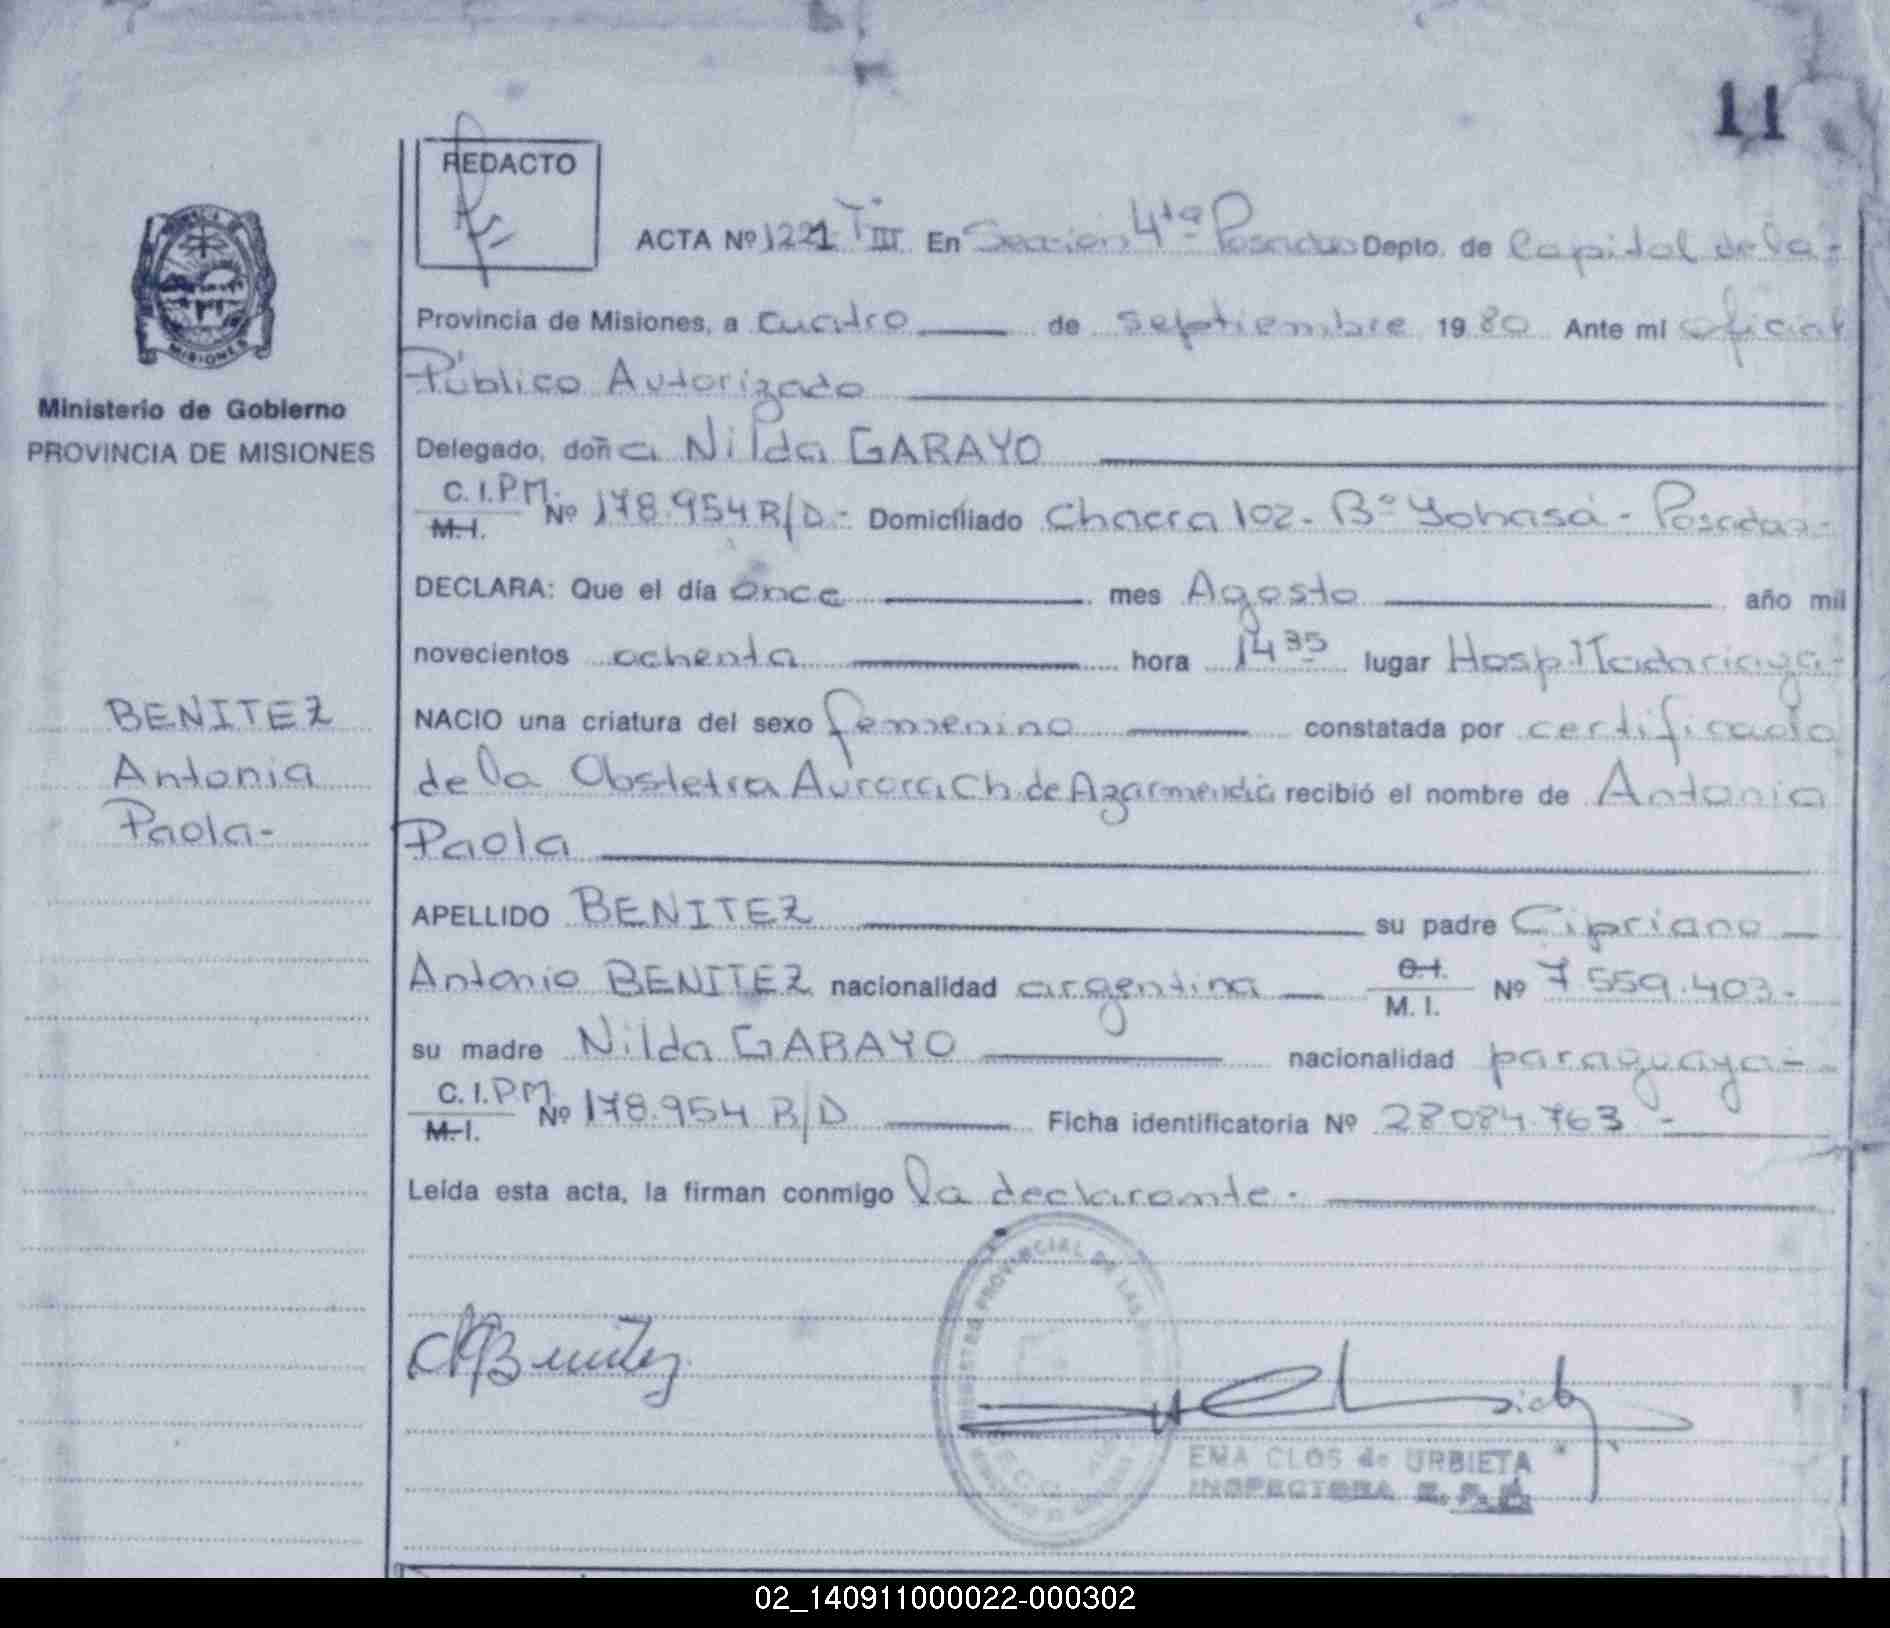 11
REDACTO
ACTA Nº 1221 Tº III En Sección 4ta Posadas Depto. de Capital de la -
Provincia de Misiones, a cuatro de septiembre 1980 Ante mi oficial
Público Autorizado
Ministerio de Gobierno
PROVINCIA DE MISIONES
Delegado, doña Nilda GARAYO
C.I.P.M. M.I. Nº 178.954 R/D - Domiciliado Chacra 102 - Bº Yohasá - Posadas -
DECLARA: Que el día once mes Agosto año mil
novecientos ochenta hora 14 35 lugar Hosp.
BENITEZ
Antonia
Paola-
NACIO una criatura del sexo femenino constatada por certificado
de la Obstetra Aurora Ch. de Azarmendia recibió el nombre de Antonia
Paola
APELLIDO BENITEZ su padre Cipriano
Antonio BENITEZ nacionalidad argentina C.I. M.I. Nº 7 559.403 -
su madre Nilda GARAYO nacionalidad paraguaya -
C.I.P.M. M.I. Nº 178.954 R/D Ficha identificatoria Nº 28084.763 -
Leída esta acta, la firman conmigo la declarante.
REGISTRO PROVINCIAL DE LAS
EMA CLOS de URBIETA
INSPECTORA
02_140911000022-000302